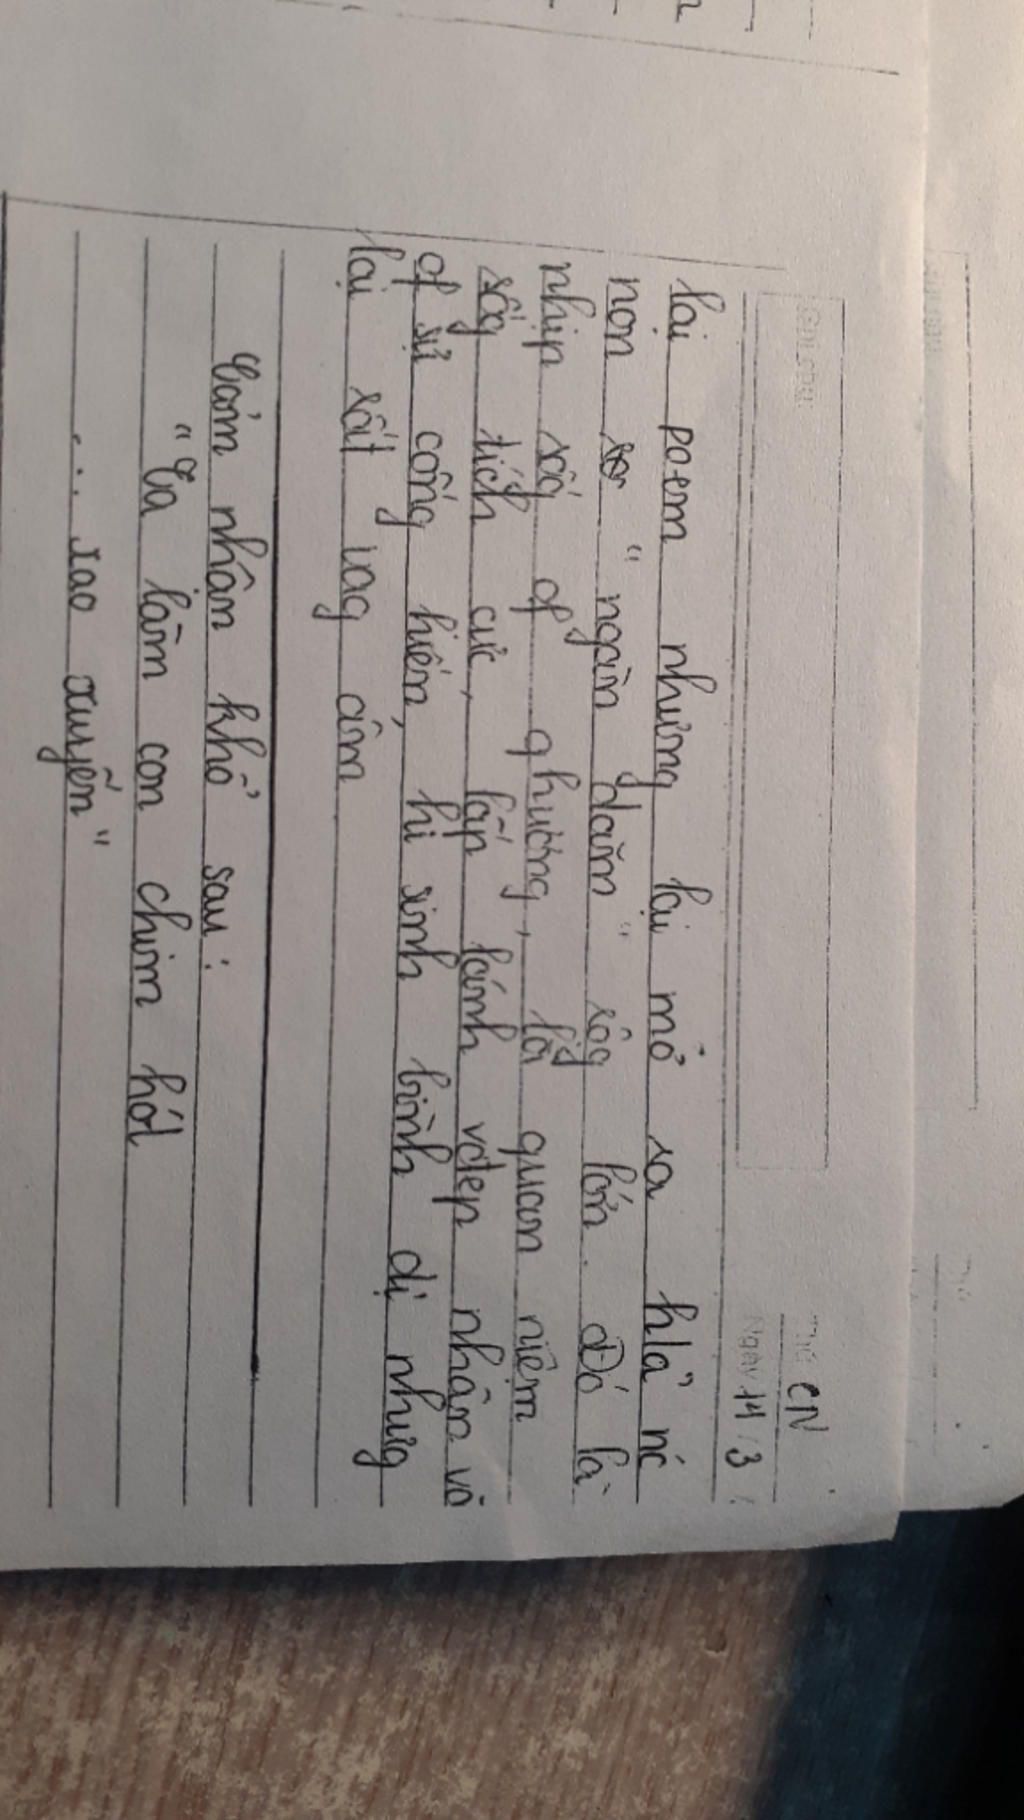 Thứ CN
Ngày 14 / 3
lại poem nhưng lại mở ra hla nć
non " ngàn dặm " rôg lớn. Đó là
nhịp sốg of qhương, là quan niệm
sốg tích cực, lấp lánh vđẹp nhân vă
of sự cống hiến, hi sinh bình dị nhưg
lại rất vag âm
Cảm nhân khổ sau :
" Ta làm con chim hót
... xao xuyến "